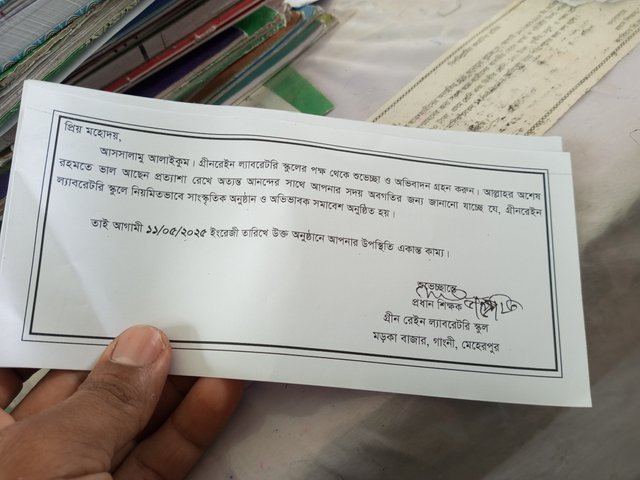 প্রিয় মহোদয়,
আসসালামু আলাইকুম। গ্রীনরেইন ল্যাবরেটরি স্কুলের পক্ষ থেকে শুভেচ্ছা ও অভিবাদন গ্রহন করুন। আল্লাহর অশেষ
রহমতে ভাল আছেন প্রত্যাশা রেখে অত্যন্ত আনন্দের সাথে আপনার সদয় অবগতির জন্য জানানো যাচ্ছে যে, গ্রীনরেইন
ল্যাবরেটরি স্কুলে নিয়মিতভাবে সাংস্কৃতিক অনুষ্ঠান ও অভিভাবক সমাবেশ অনুষ্ঠিত হয়।
তাই আগামী ১১/০৫/২০২৫ ইংরেজী তারিখে উক্ত অনুষ্ঠানে আপনার উপস্থিতি একান্ত কাম্য।
শুভেচ্ছান্তে
প্রধান শিক্ষক
গ্রীন রেইন ল্যাবরেটরি স্কুল
মড়কা বাজার, গাংনী, মেহেরপুর